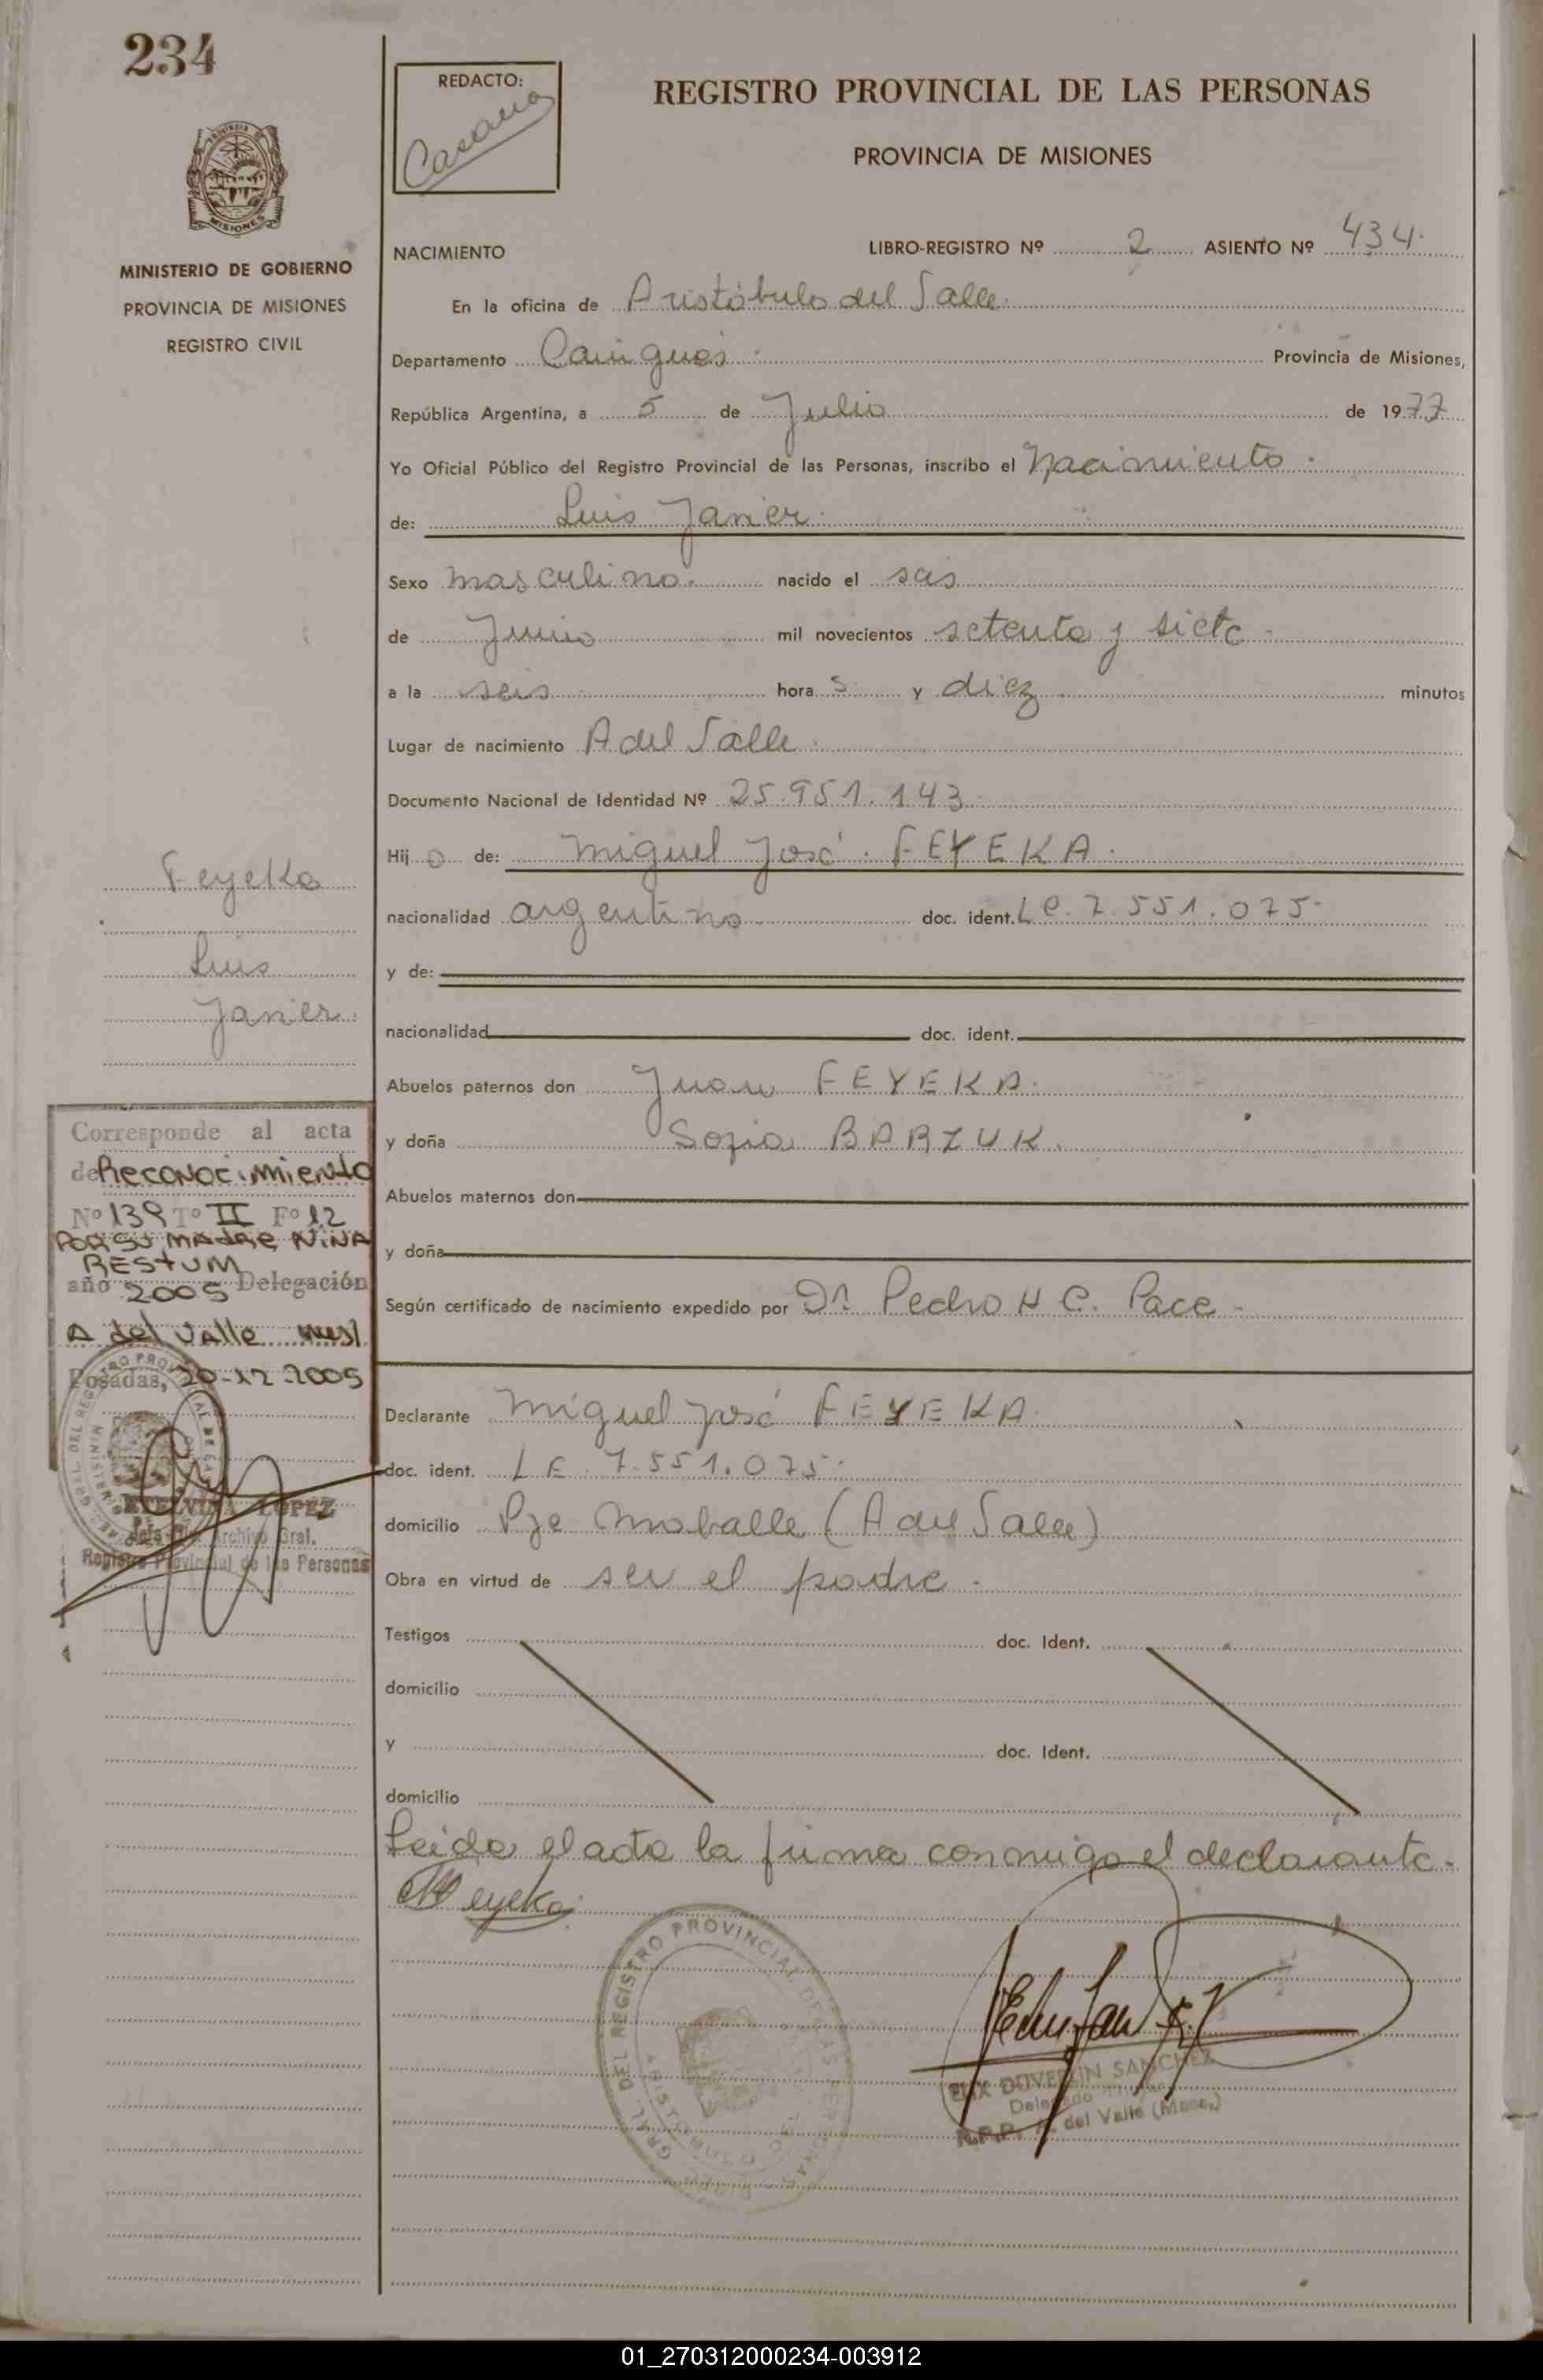 234
REDACTO:
REGISTRO PROVINCIAL DE LAS PERSONAS
PROVINCIA DE MISIONES
MISIONES
MINISTERIO DE GOBIERNO
PROVINCIA DE MISIONES
REGISTRO CIVIL
NACIMIENTO LIBRO-REGISTRO Nº 2 ASIENTO Nº 434.
En la oficina de Aristóbulo del Valle.
Departamento Cainguás. Provincia de Misiones,
República Argentina, a 5 de Julio de 1977
Yo Oficial Público del Registro Provincial de las Personas, inscribo el Nacimiento.
de: Luis Javier.
Sexo masculino. nacido el seis
de Junio mil novecientos setenta y siete.
a la seis hora s y diez minutos
Lugar de nacimiento A del Valle.
Documento Nacional de Identidad Nº 25.951.143
Hij o de: Miguel José. FEYEKA.
nacionalidad argentino doc. ident. L E. 7.551.075.
y de:
nacionalidad doc. ident.
Abuelos paternos don Juan FEYEKA.
y doña Sofia BARZUK.
Abuelos maternos don
y doña
Según certificado de nacimiento expedido por Dr. Pedro H C. Pace.
Feyeka
Luis
Javier.
Corresponde al acta
de Reconocimiento
Nº 139 Tº II Fº 12
POR SU MADRE NINA
RESTUM
año 2005 Delegación
A del Valle
Posadas, 20-12-2005
ETELVINA LOPEZ
Archivo Gral.
Registro Provincial de las Personas
Declarante Miguel José FEYEKA.
doc. ident. L E. 7.551.075.
domicilio Pje (A del Valle)
Obra en virtud de ser el padre.
Testigos doc. Ident.
domicilio
y doc. Ident.
domicilio
Leida el acta la firma conmigo el declarante.
Feyeka
GRAL. DEL REGISTRO PROVINCIAL DE LAS PERSONAS
SANCHEZ
R.P.P. A. del Valle (Mnes.)
01_270312000234-003912